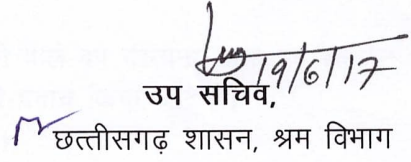 19/6/17
उप सचिव,
छत्तीसगढ़ शासन, श्रम विभाग